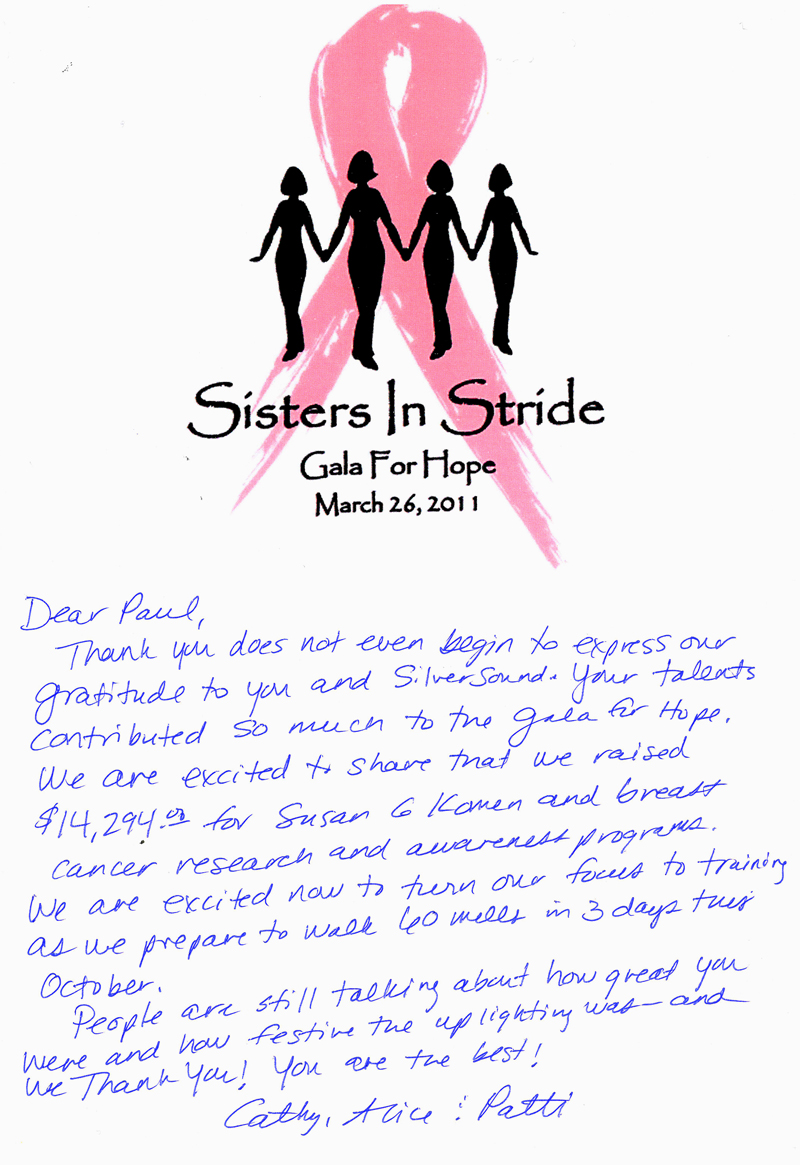 Sisters In Stride
Gala For Hope
March 26, 2011
Dear Paul,
Thank you does not even begin to express our
gratitude to you and SilverSound. Your talents
contributed so much to the Gala for Hope.
We are excited to share that we raised
$14,294.00 for Susan G Komen and breast
cancer research and awareness programs.
We are excited now to turn our focus to training
as we prepare to walk 60 miles in 3 days this
October.
People are still talking about how great you
were and how festive the up lighting was - and
we Thank You! You are the best!
Cathy, Alice & Patti